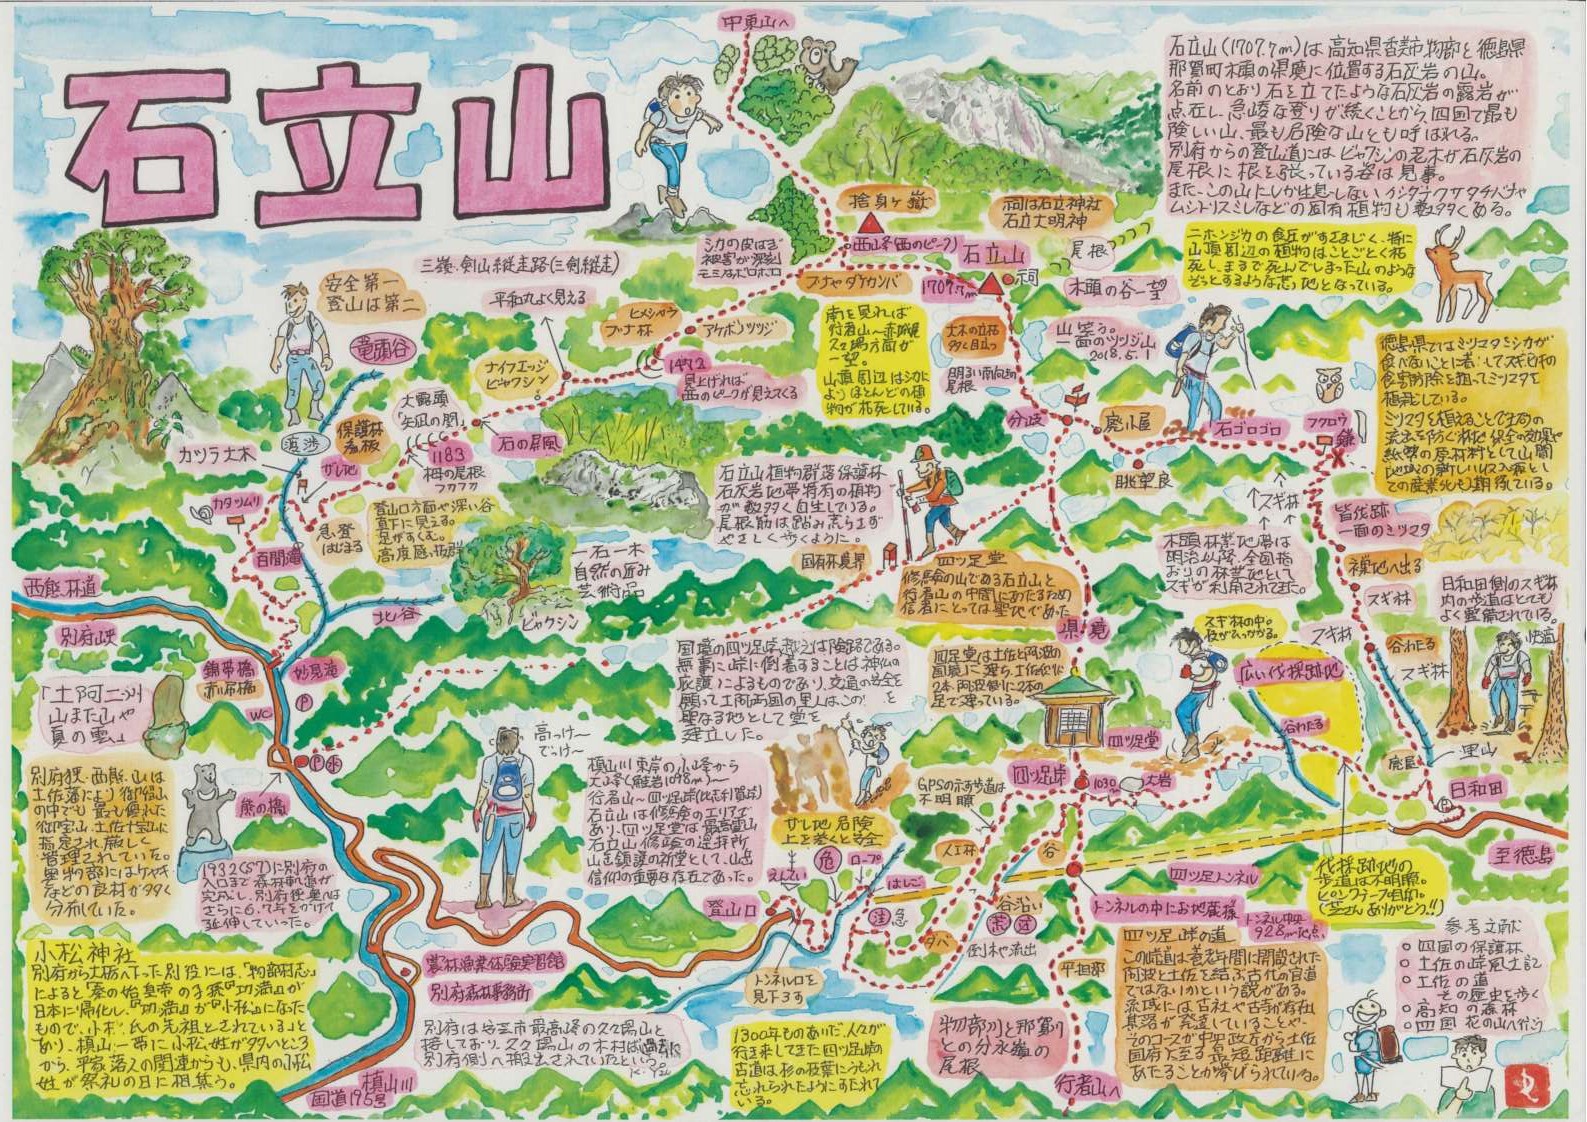 石立山
中東山へ
石立山(1707.7m)は高知県香美市物部と徳島県
那賀町木頭の県境に位置する石灰岩の山。
名前のとおり石を立てたような石灰岩の露岩が
点在し、急峻な登りが続くことから、四国で最も
険しい山、最も危険な山とも呼ばれる。
別府からの登山道にはビャクシンの老木が石灰岩の
尾根に根を張っている姿は見事。
また、この山にしか生息しないイシダテクサタチバナや
ムシトリスミレなどの固有植物も数多くある。
ニホンジカの食圧がすさまじく、特に
山頂周辺の植物はことごとく枯
死し、まるで死んでしまった山のような
ぞっとするような裸地となっている。
捨身ヶ嶽
祠は石立神社
石立大明神
西山峰(西のピーク)
石立山
尾根
1707.7m
祠
木頭の谷一望
シカの皮はぎ
被害が深刻
モミなどボロボロ
ブナやダケカンバ
三嶺・剣山縦走路(三剣縦走)
平和丸よく見える
安全第一
登山は第二
竜頭谷
ヒメシャラ
ブナ林
アケボノツツジ
1472
見上げれば
西のピークが見えてくる
南を見れば
行者山〜赤城尾
久々場方面が
一望。
山頂周辺はシカに
よりほとんどの植
物が枯死している。
大木の立枯
多く目立つ
明るい南向きの
尾根
山笑う。
一面のツツジ山
2018.5.1
徳島県ではミツマタをシカが
食べないことに着目してスギ苗の
食害防除を狙ってミツマタを
植栽している。
ナイフエッジ
ビャクシン
大露頭
「矢凪の関」
石の屏風
1183
栂の尾根
フカフカ
保護林
看板
渡渉
カツラ大木
ガレ地
カタツムリ
百間滝
急登
はじまる
登山口方面や深い谷
真下に見える。
足がすくむ。
高度感抜群
分岐
鹿小屋
石ゴロゴロ
フクロウ
鎌
眺望良
スギ林
皆伐跡
一面のミツマタ
裸地へ出る
スギ林
石立山植物群落保護林
石灰岩地帯特有の植物
が数多く自生している。
尾根筋は踏み荒らさず
やさしく歩くように。
国有林境界
一石一木
自然の匠み
芸術品
ビャクシン
四ツ足堂
修験の山である石立山と
行者山の中間にあたるため
信者にとっては聖地であった
県境
木頭林業地帯は
明治以降、全国指
おりの林業地として
スギが利用されてきた。
日和田側のスギ林
内の歩道はとても
よく整備されている。
快適
西熊林道
別府峡
北谷
錦帯橋
赤吊橋
妙見滝
WC
「土阿二州
山また山や
夏の雲」
国境の四ツ足峠越えは険路である。
無事に峠に到着することは神仏の
庇護によるものであり、交通の安全を
願って土阿両国の里人はこの
聖なる地として堂を
建立した。
四足堂は土佐と阿波の
国境に建ち、土佐側に
2本、阿波側に2本の
足で建っている。
スギ林の中。
枝がひっかかる。
広い伐採跡地
スギ林
谷わたる
スギ林
谷わたる
四ツ足堂
里山
日和田
別府狭・西熊山は
土佐藩により御留山
の中でも最も優れた
御宝山・土佐十宝山に
指定され厳しく
管理されていた。
奥物部にはケヤキ
などの良材が多く
分布していた。
熊の橋
1932(S7)に別府の
入口まで森林軌道が
完成し、別府峡奥へは
さらに6、7年をかけて
延伸していった。
高っけ〜
でっけ〜
槙山川東岸の小峰から
行者山〜四ツ足峠
石立山は修験のエリアで
あり、四ツ足堂は最高霊山
石立山修験の遥拝所
山を鎮護の祈堂として、山岳
信仰の重要な存在であった。
GPSの示す歩道は
不明瞭
四ツ足峠
1030m
大岩
ガレ地危険
上を巻くと安全
危
ロープ
はしご
人工林
谷
四ツ足トンネル
至徳島
登山口
注
急
谷沿い
荒
迷
倒木や流出
トンネルの中にお地蔵様
トンネル中央
928m地点
伐採跡地の
歩道は不明瞭。
ピンクテープ目印。
(芝さんありがとう!!)
小松神社
農林漁業体験実習館
別府森林事務所
トンネル口を
見下ろす
平坦部
四ツ足峠の道
この峠道は養老年間に開設された
阿波と土佐を結ぶ古代の官道
ではないかという説がある。
流域には古社や古寺が存在し
集落が発達していることや、
そのコースが中央政庁から土佐
国府に至る最短距離に
あたることが挙げられている。
参考文献
○四国の保護林
○土佐の峠風土記
○土佐の道
その歴史を歩く
○高知の森林
○四国花の山へ行こう
別府から大栃へ下った別役には、「物部村志」
によると「秦の始皇帝の子孫『功満』が
日本に帰化し、『功満』が『小松』になった
もので、小松氏の先祖とされている」と
あり、槙山一帯に小松姓が多いところ
から、平家落人の関連からも、県内の小松
姓が祭礼の日に相集う。
国道195号
槙山川
1300年ものあいだ、人々が
行き来してきた四ツ足峠の
古道は杉の枝葉にうもれ
忘れられたようにすたれて
いる。
物部川と那賀川
との分水嶺の
尾根
行者山へ